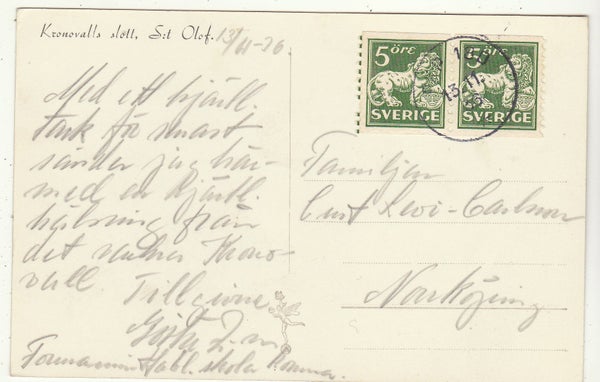 Kronovalls slott, S:t Olof.
13/11-36.
Med ett hjärtl.
tack för senast
sänder jag här-
med en hjärtl.
hälsning från
det vackra Krono-
vall.
Tillgivne
Gösta
skola
5 ÖRE
SVERIGE
5 ÖRE
SVERIGE
13.11.36
Familjen
Curt Levi-Carlsson
Norrköping